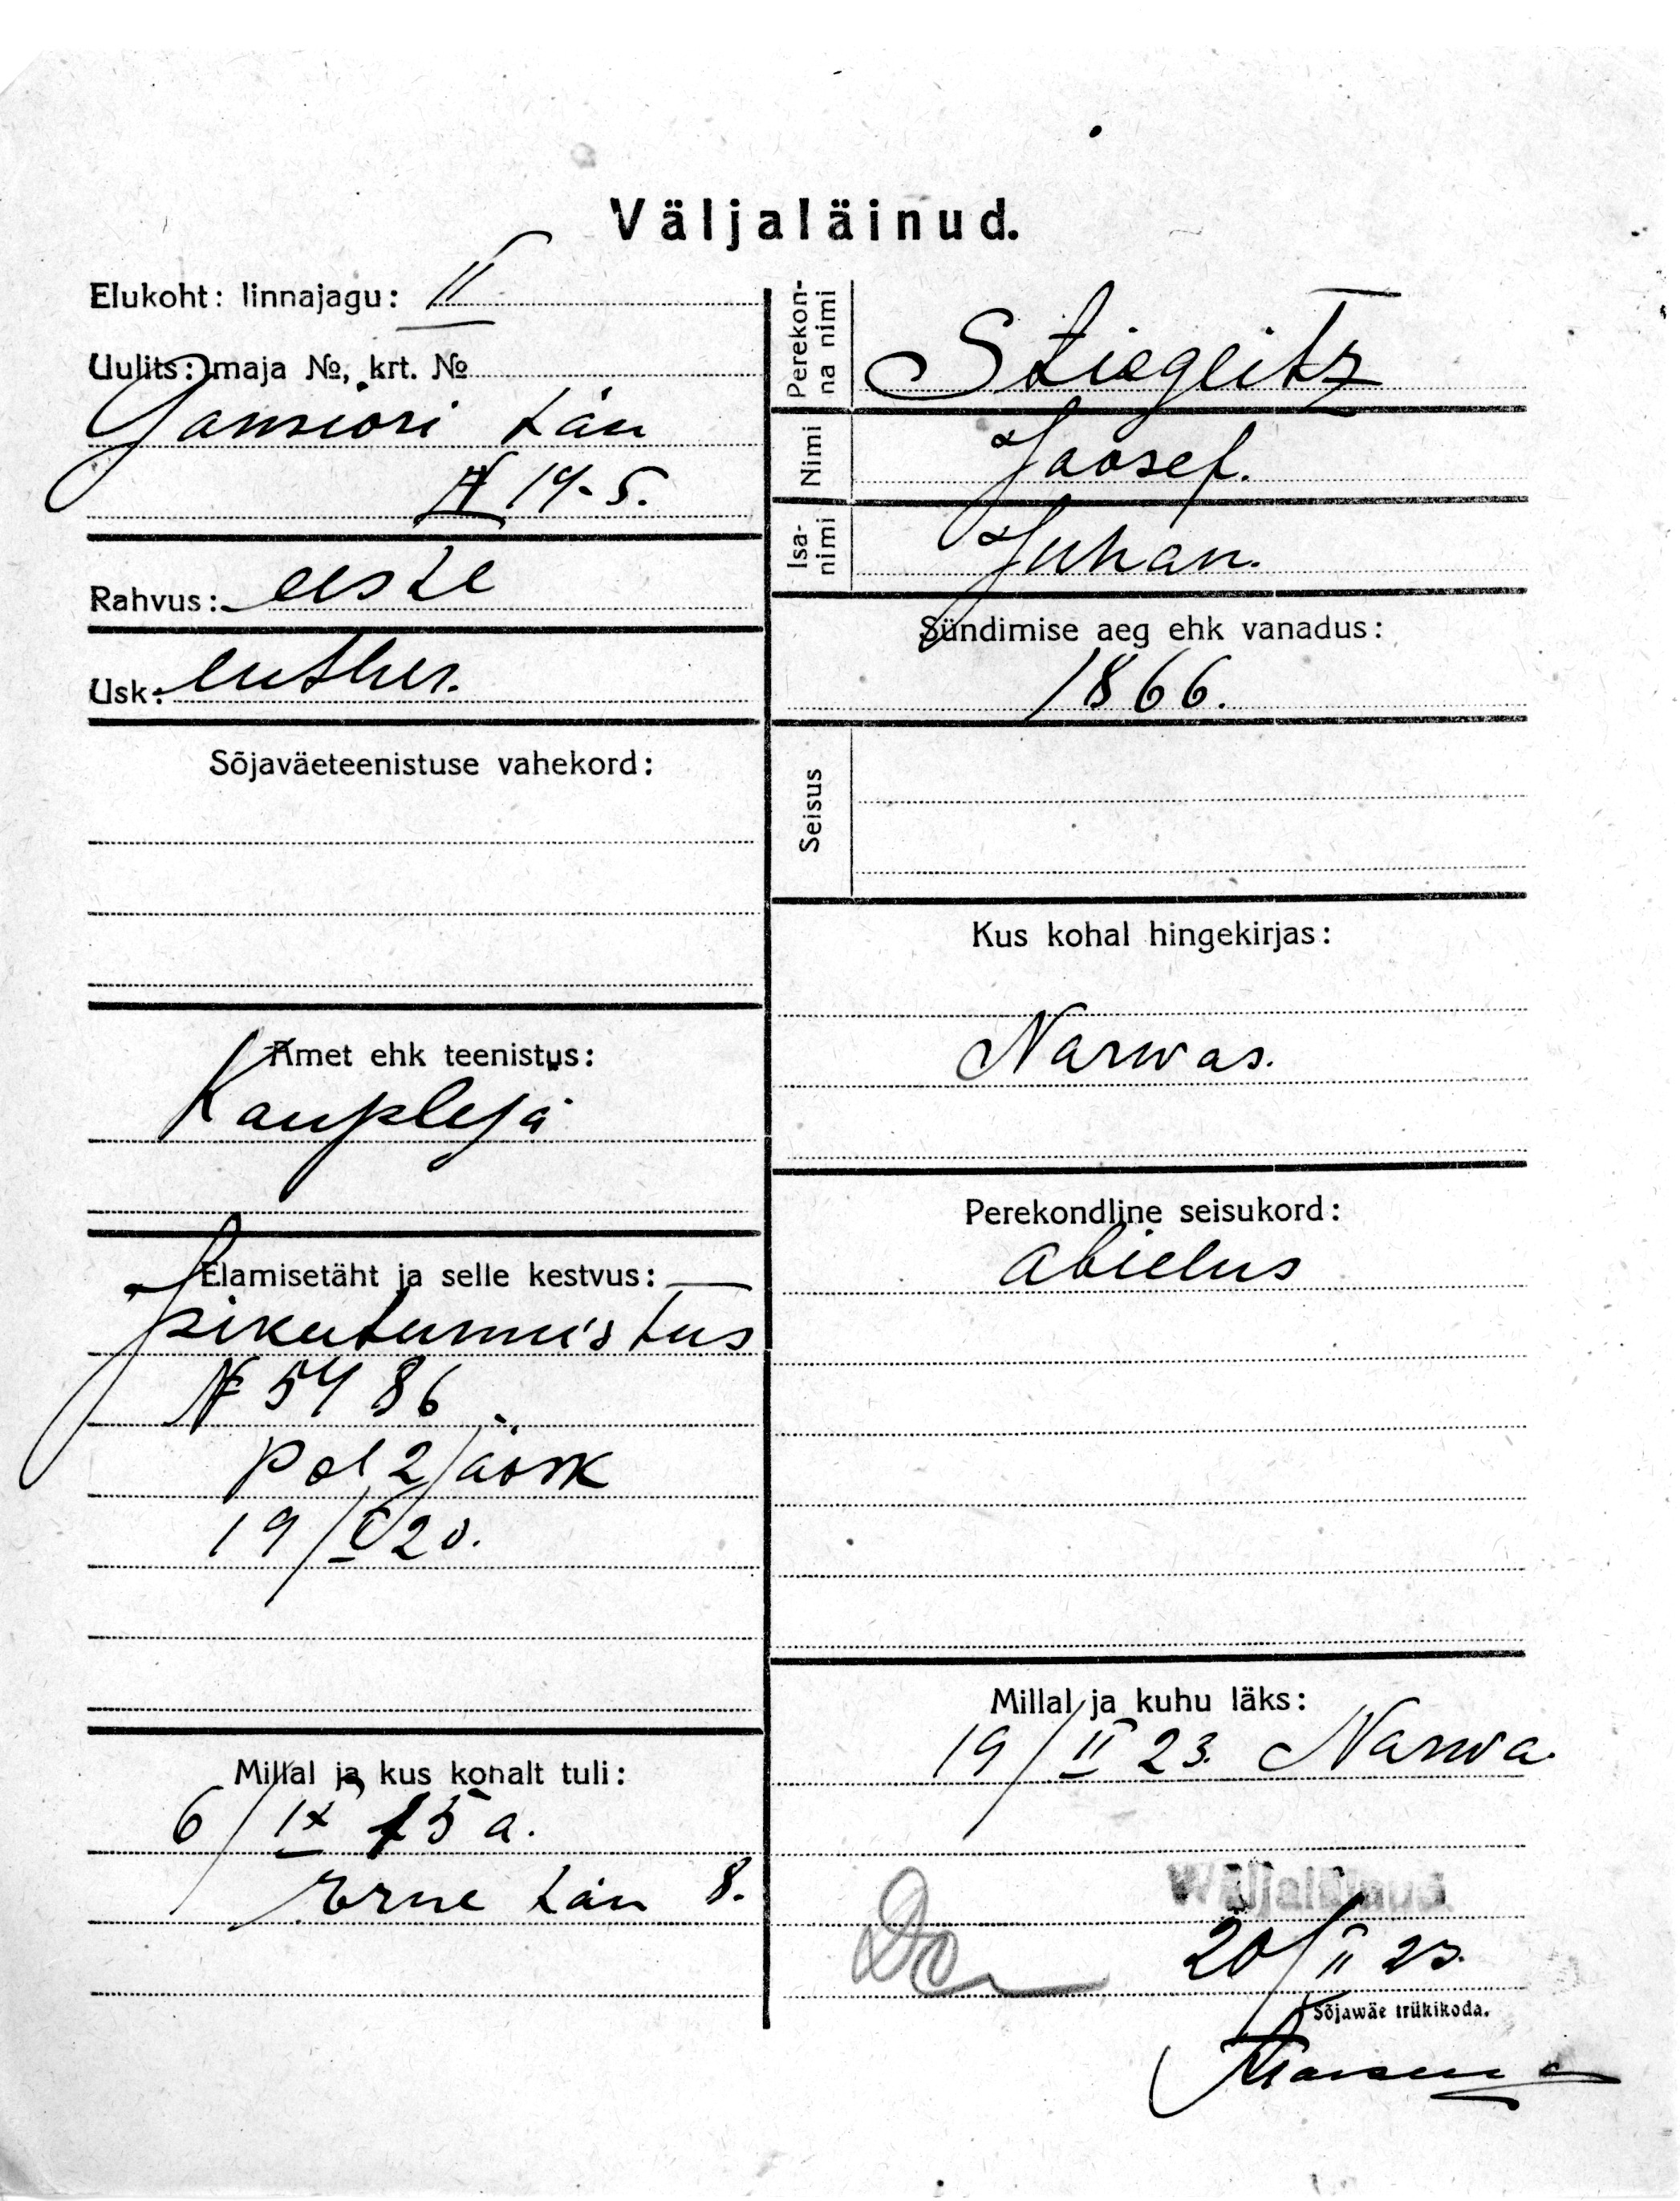 Väljaläinud.
Elukoht: linnajagu: II
Uulits: maja №, krt. №
Gonsiori tän
№ 14-5.
Rahvus: eeste
Usk: luther.
Sõjaväeteenistuse vahekord:
Amet ehk teenistus:
Kaupleja
Elamisetäht ja selle kestvus:
isikutunnistus
№ 5486
Pol 2 jaosk
19/I 20.
Millal ja kus kohalt tuli:
6/IX 15 a.
Erne tän 8.
Perekon-
na nimi
Stieglitz
Nimi
Joosef.
Isa-
nimi
Juhan.
Sündimise aeg ehk vanadus:
1866.
Seisus
Kus kohal hingekirjas:
Narwas.
Perekondline seisukord:
abielus
Millal ja kuhu läks:
19/II 23. Narwa.
Wäljaläinud.
20/II 23.
Sõjawäe trükikoda.